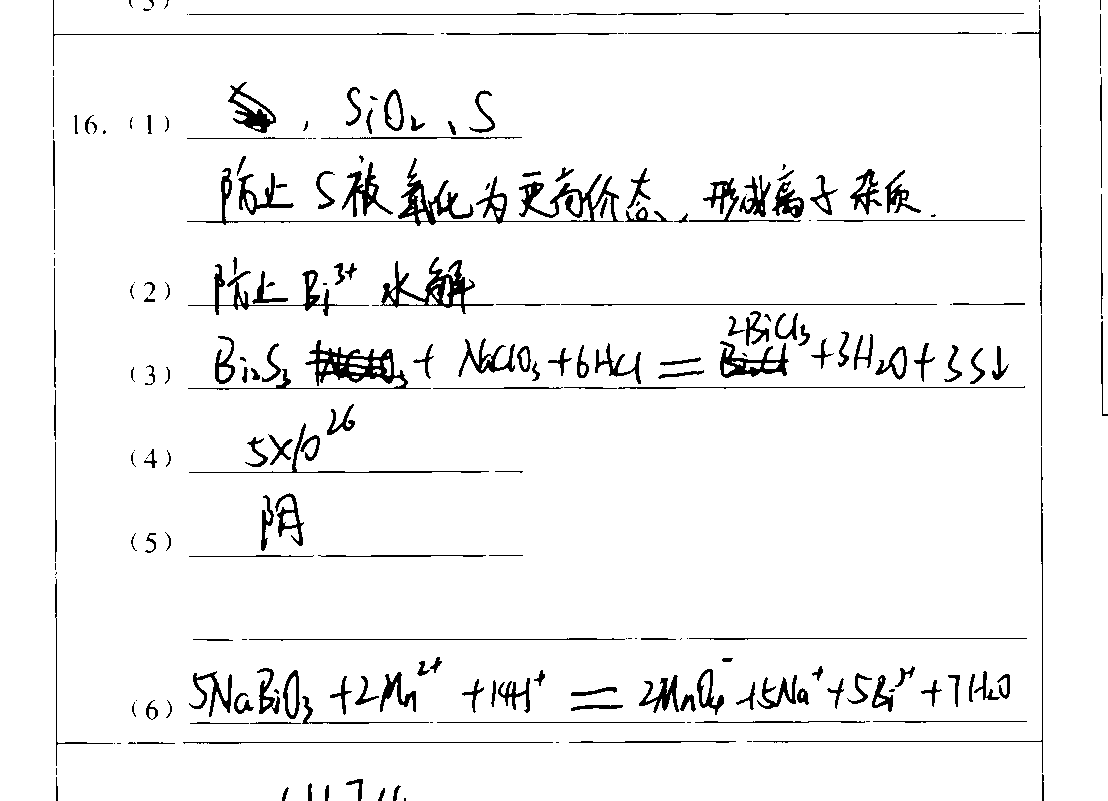 16.(1) , SiO₂、S
防止S被氧化为更高价态，形成离子杂质.
(2) 防止Bi³⁺水解
(3) Bi₂S₃ + NaClO₃+6HCl = 2BiCl₃ +3H₂O+3S↓
(4) 5×10²⁶
(5) 阴
(6) 5NaBiO₃+2Mn²⁺+14H⁺ = 2MnO₄⁻+5Na⁺+5Bi³⁺+7H₂O